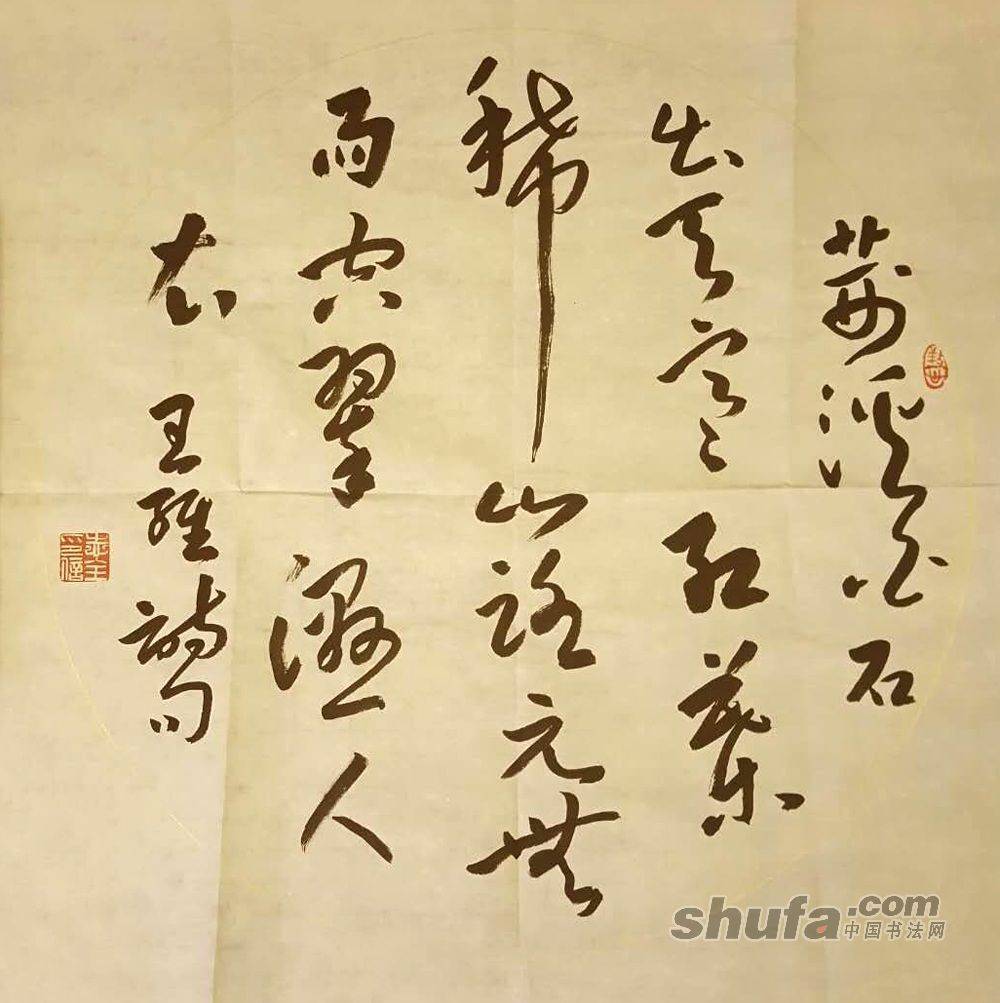 荆溪白石
出天寒紅葉
稀山路元無
雨空翠濕人
衣 王維詩句
shufa.com
中国书法网